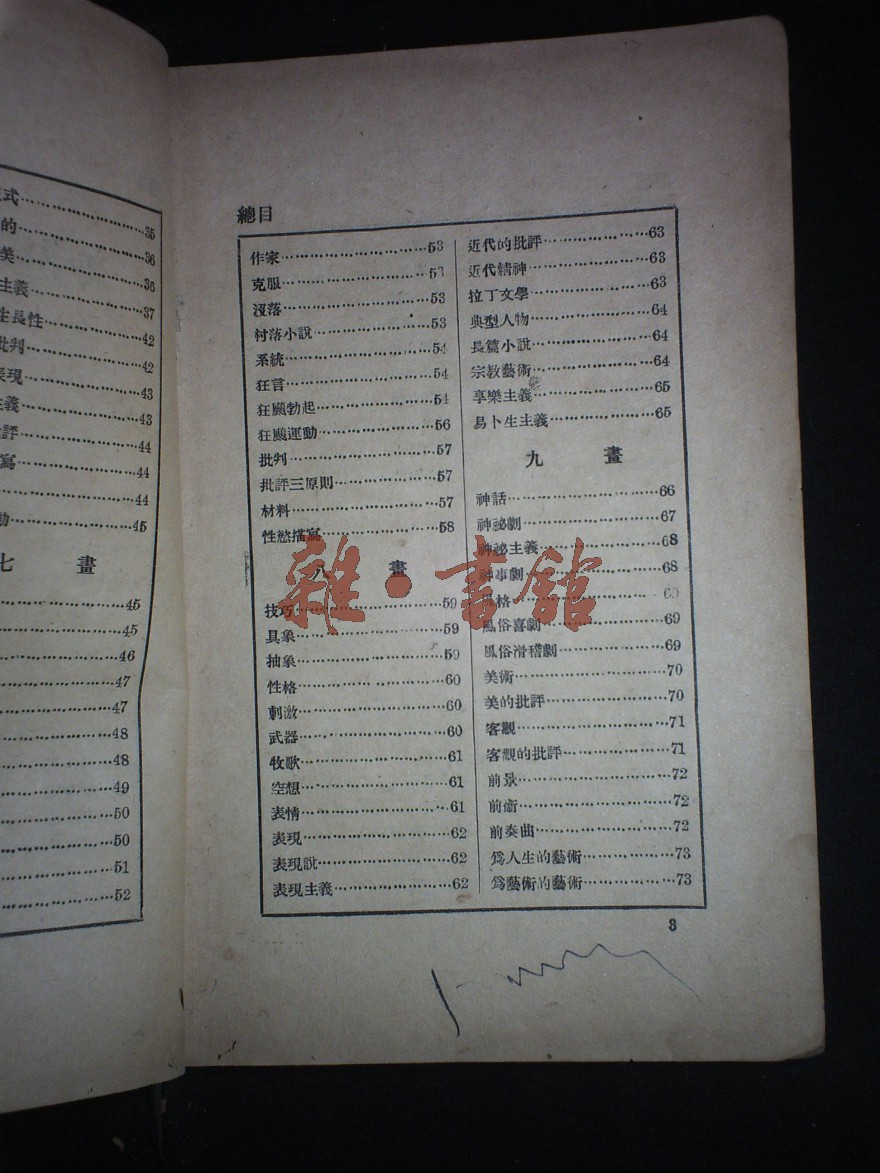 式……35
的……36
美……36
主義……37
生長性……42
批判……42
表現……43
義……43
評……44
寫……44
……44
動……45
七畫
……45
……45
……46
……47
……47
……48
……48
……49
……50
……50
……51
……52
總目
作家……53
克服……53
沒落……53
村落小說……53
系統……54
狂言……54
狂飈勃起……54
狂飈運動……56
批判……57
批評三原則……57
材料……57
性慾描寫……58
八畫
技巧……59
具象……59
抽象……59
性格……60
刺激……60
武器……60
牧歌……61
空想……61
表情……61
表現……62
表現說……62
表現主義……62
近代的批評……63
近代精神……63
拉丁文學……63
典型人物……64
長篇小說……64
宗教藝術……64
享樂主義……65
易卜生主義……65
九畫
神話……66
神祕劇……67
神祕主義……68
神事劇……68
格……69
風俗喜劇……69
風俗滑稽劇……69
美術……70
美的批評……70
客觀……71
客觀的批評……71
前景……72
前衞……72
前奏曲……72
爲人生的藝術……73
爲藝術的藝術……73
3
雜·書館